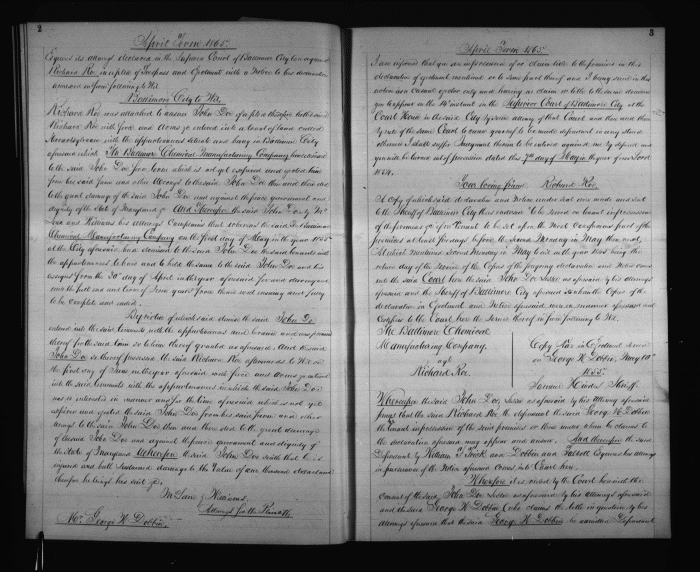 2
April Term 1865
Esquires its attorneys declared in the Superior Court of Baltimore City Com against
Richard Roe in a plea of Trespass and Ejectment with a Notice to his declaration
annexed in form following To Wit
Baltimore City to Wit,
Richard Roe was attached to answer John Doe of a plea therefore
Richard Roe with force and arms &c entered into a
with the appurtenances situate and being in Baltimore City
aforesaid which The Baltimore Chemical Manufacturing Company had demised
to the said John Doe for a term which is not yet expired and ejected him
from his said Farm and other wrongs to the said John Doe then and there did
to the great damage of the said John Doe and against the peace government and
dignity of the State of Maryland &c And thereupon the said John Doe by McLane
and Williams his attorneys Complains that whereas the said The Baltimore
Chemical Manufacturing Company on the first day of May in the year 1855
at the City aforesaid had demised to the said John Doe the said tenements with
the appurtenances to have and to hold the same to the said John Doe and his
assigns from the 30th day of April in the year aforesaid for and during and
until the full end and term of years from thence next ensuing and fully
to be complete and ended.
By virtue of which said demise the said John Doe
entered into the said tenements with the appurtenances and became and was possessed
thereof for the said term so to him thereof granted as aforesaid. And the said
John Doe so thereof possessed the said Richard Roe afterwards to Wit on
the first day of in the year aforesaid with force and arms &c entered
into the said tenements with the appurtenances in which the said John Doe
was so interested in manner and for the time aforesaid which is not yet
expired and ejected the said John Doe from his said farm and other
wrongs to the said John Doe then and there did to the great damage
of the said John Doe and against the peace government and dignity of
the State of Maryland Whereupon the said John Doe saith that he is
injured and hath sustained damage to the value of one thousand dollars and
therefore he brings his suit &c.
McLane & Williams
Attorneys for the Plaintiff
Mr. George W. Dobbin,
3
April Term 1865
I am informed that you are in possession of or claim title to the premises in this
declaration of ejectment mentioned or to some part thereof and I being sued in this
action as a casual ejector only and having no claim or title to the same do advise
you to appear on the 14th instant in the Superior Court of Baltimore City at the
Court House in the said City by some attorney of that Court and then and there
by rule of the same Court to cause yourself to be made defendant in my stead
otherwise I shall suffer Judgment therein to be entered against me by default and
you will be turned out of possession dated this 7th day of May in the year of our Lord
Your loving friend Richard Roe.
A copy of which said declaration and Notice under that was made and sent
to the Sheriff of Baltimore City then and there to be served on tenant in possession
of the premises &c if no Tenant to be set up on the most Conspicuous part of the
premises at least days before the second Monday in May then next,
At which mentioned second Monday in May 1855 in the year 1855 being the
return day of the service of the Copies of the foregoing declaration and Notice comes
into the said Court here the said John Doe Lessee as aforesaid by his attorneys
aforesaid and the Sheriff of Baltimore City aforesaid returns the Copies of the
declaration in Ejectment and Notice aforesaid were in manner aforesaid and
Certifies to the Court here the service thereof in form following To Wit.
The Baltimore Chemical
Manufacturing Company
agt
Richard Roe.
Copy Nar in Ejectment served
on George W. Dobbin, May 10th
1855.
Samuel Hinds Sheriff.
Whereupon the said John Doe, Lessee as aforesaid by his attorney aforesaid
prays that the said Richard Roe the defendant the said George W. Dobbin
the tenant in possession of the said premises or those under whom he claims to
the declaration aforesaid may appear and answer. And thereupon the said
Defendant by William Frick and Dobbin and Talbott Esquires his attorneys
in pursuance of the Notice aforesaid Comes into Court here.
Whereupon it is ruled by the Court here with the
Consent of the said John Doe Lessee as aforesaid by his attorneys aforesaid
and the said George W. Dobbin who claims the title in question by his
attorneys aforesaid that the said George W. Dobbin be admitted Defendant